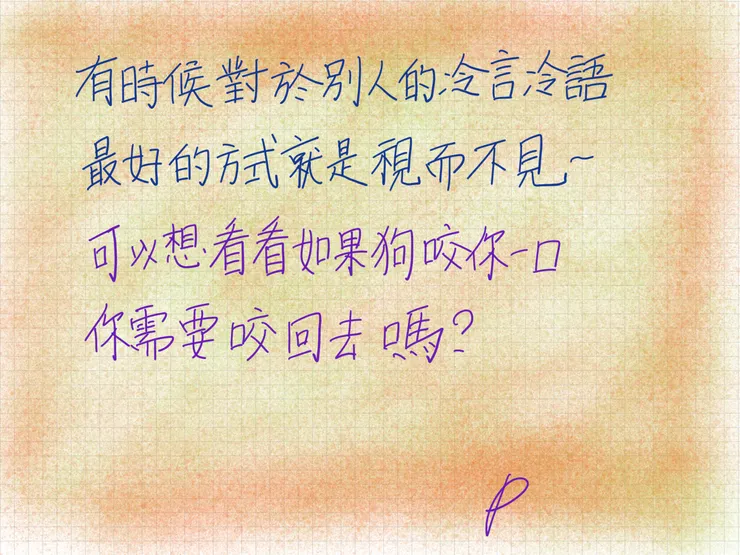 有時候對於別人的冷言冷語
最好的方式就是視而不見~
可以想看看如果狗咬你一口
你需要咬回去嗎?
P